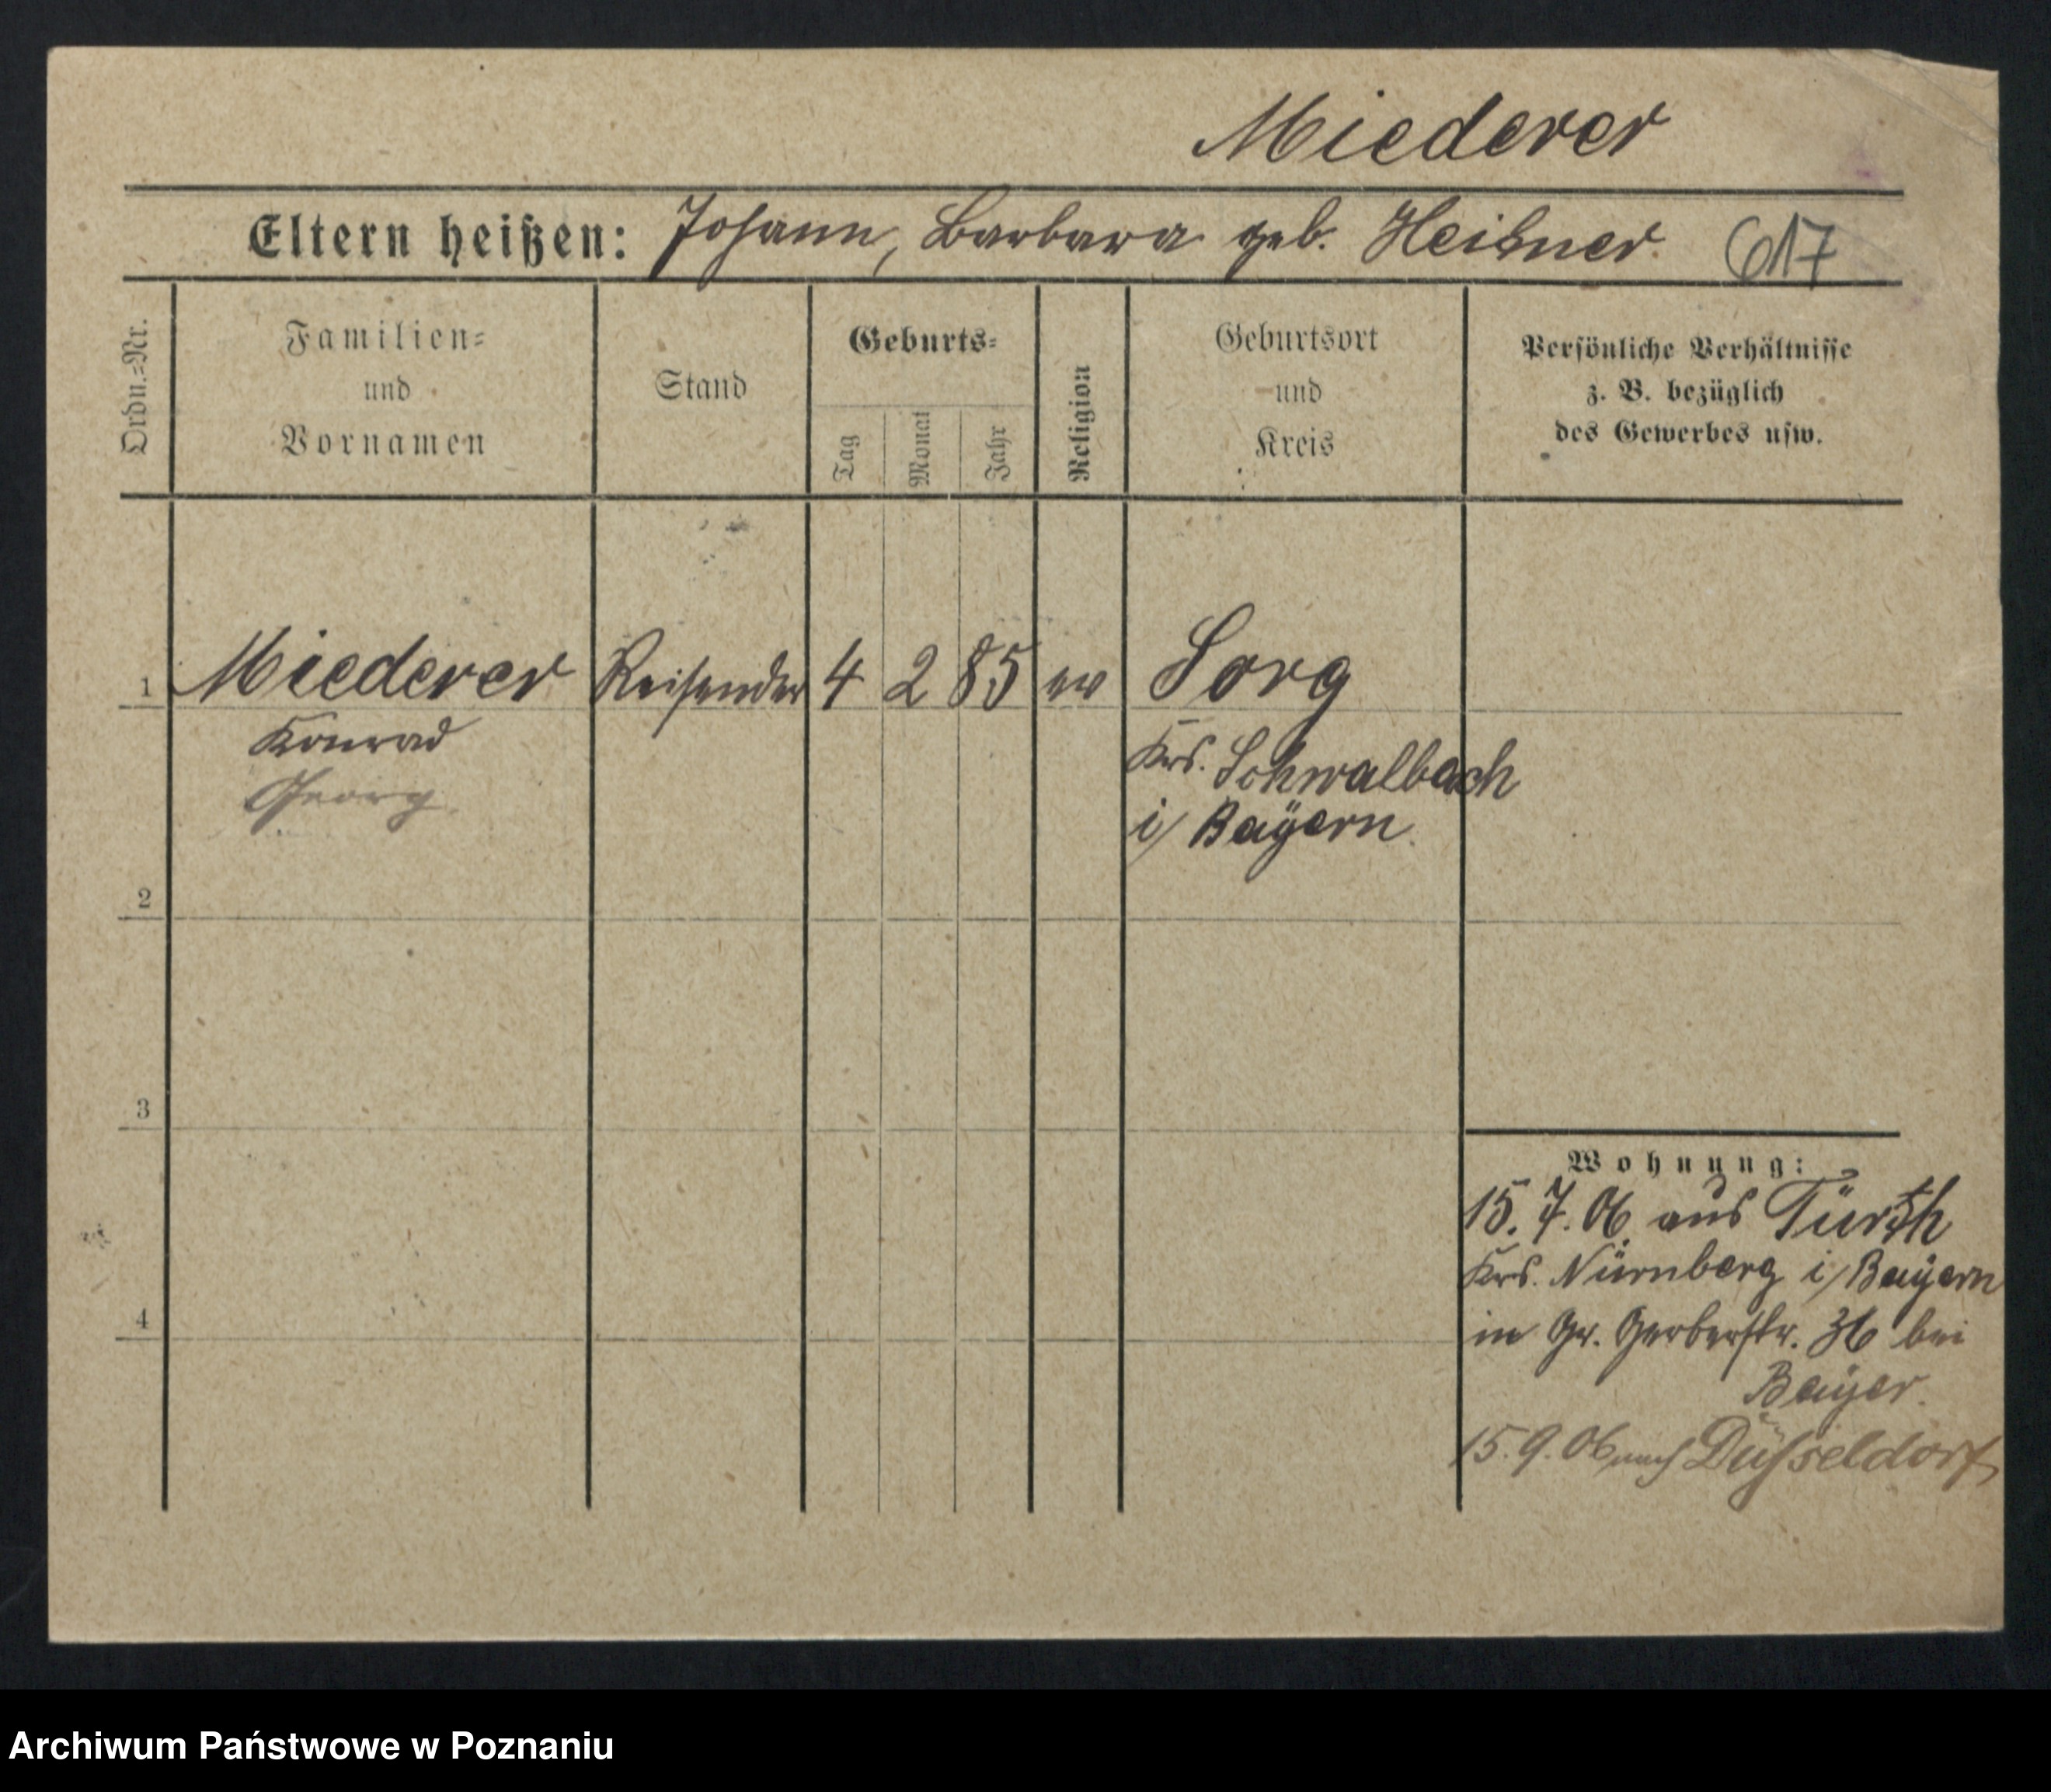 Miederer
Eltern heißen: Johann, Barbara geb. Heisner. 617
Ordn.=Nr.
Familien=
und
Vornamen
Stand
Geburts=
Tag
Monat
Jahr
Religion
Geburtsort
und
Kreis
Persönliche Verhältnisse
z. B. bezüglich
des Gewerbes usw.
1 Miederer Reisender 4 2 85 ev Sorg
Konrad
Georg
Krs. Schwalbach
i/ Bayern.
2
3
4
Wohnung:
15. 7. 06 aus Fürth
Krs. Nürnberg i/ Bayern
in Gr. Gerberstr. 36 bei
Bayer.
15. 9. 06 nach Düsseldorf
Archiwum Państwowe w Poznaniu